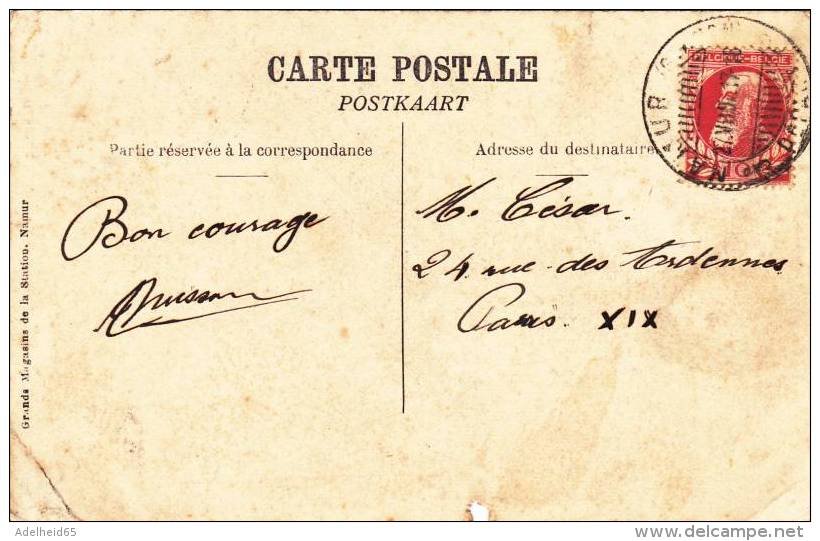 CARTE POSTALE
POSTKAART
Partie réservée à la correspondance
Adresse du destinataire
BELGIQUE-BELGIE
10
NAMUR
Bon courage
M. César.
24 rue des Ardennes
Paris. XIX
Grands Magasins de la Station. Namur
Adelheid65
delcampe.net